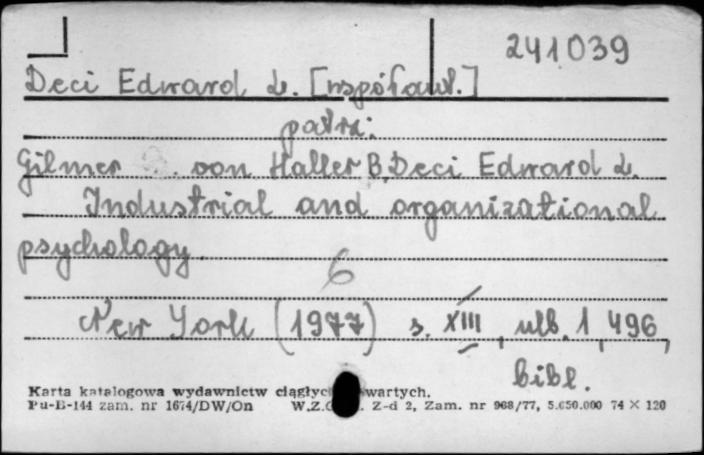 241039
Deci Edward L. [współaut.]
patrz:
Gilmer von Haller B, Deci Edward L.
Industrial and organizational
psychology.
6
New York (1977) s. XIII, ulb. 1, 496,
bibl.
Karta katalogowa wydawnictw wartych.
Pu-B-144 zam. nr 1674/DW/On Z-d 2, Zam. nr 968/77, 5.650.000 74 × 120